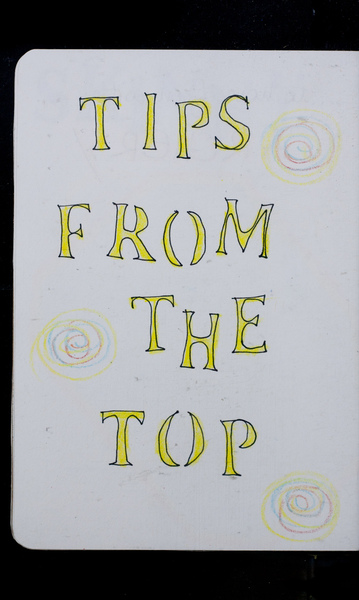 TIPS
FROM
THE
TOP